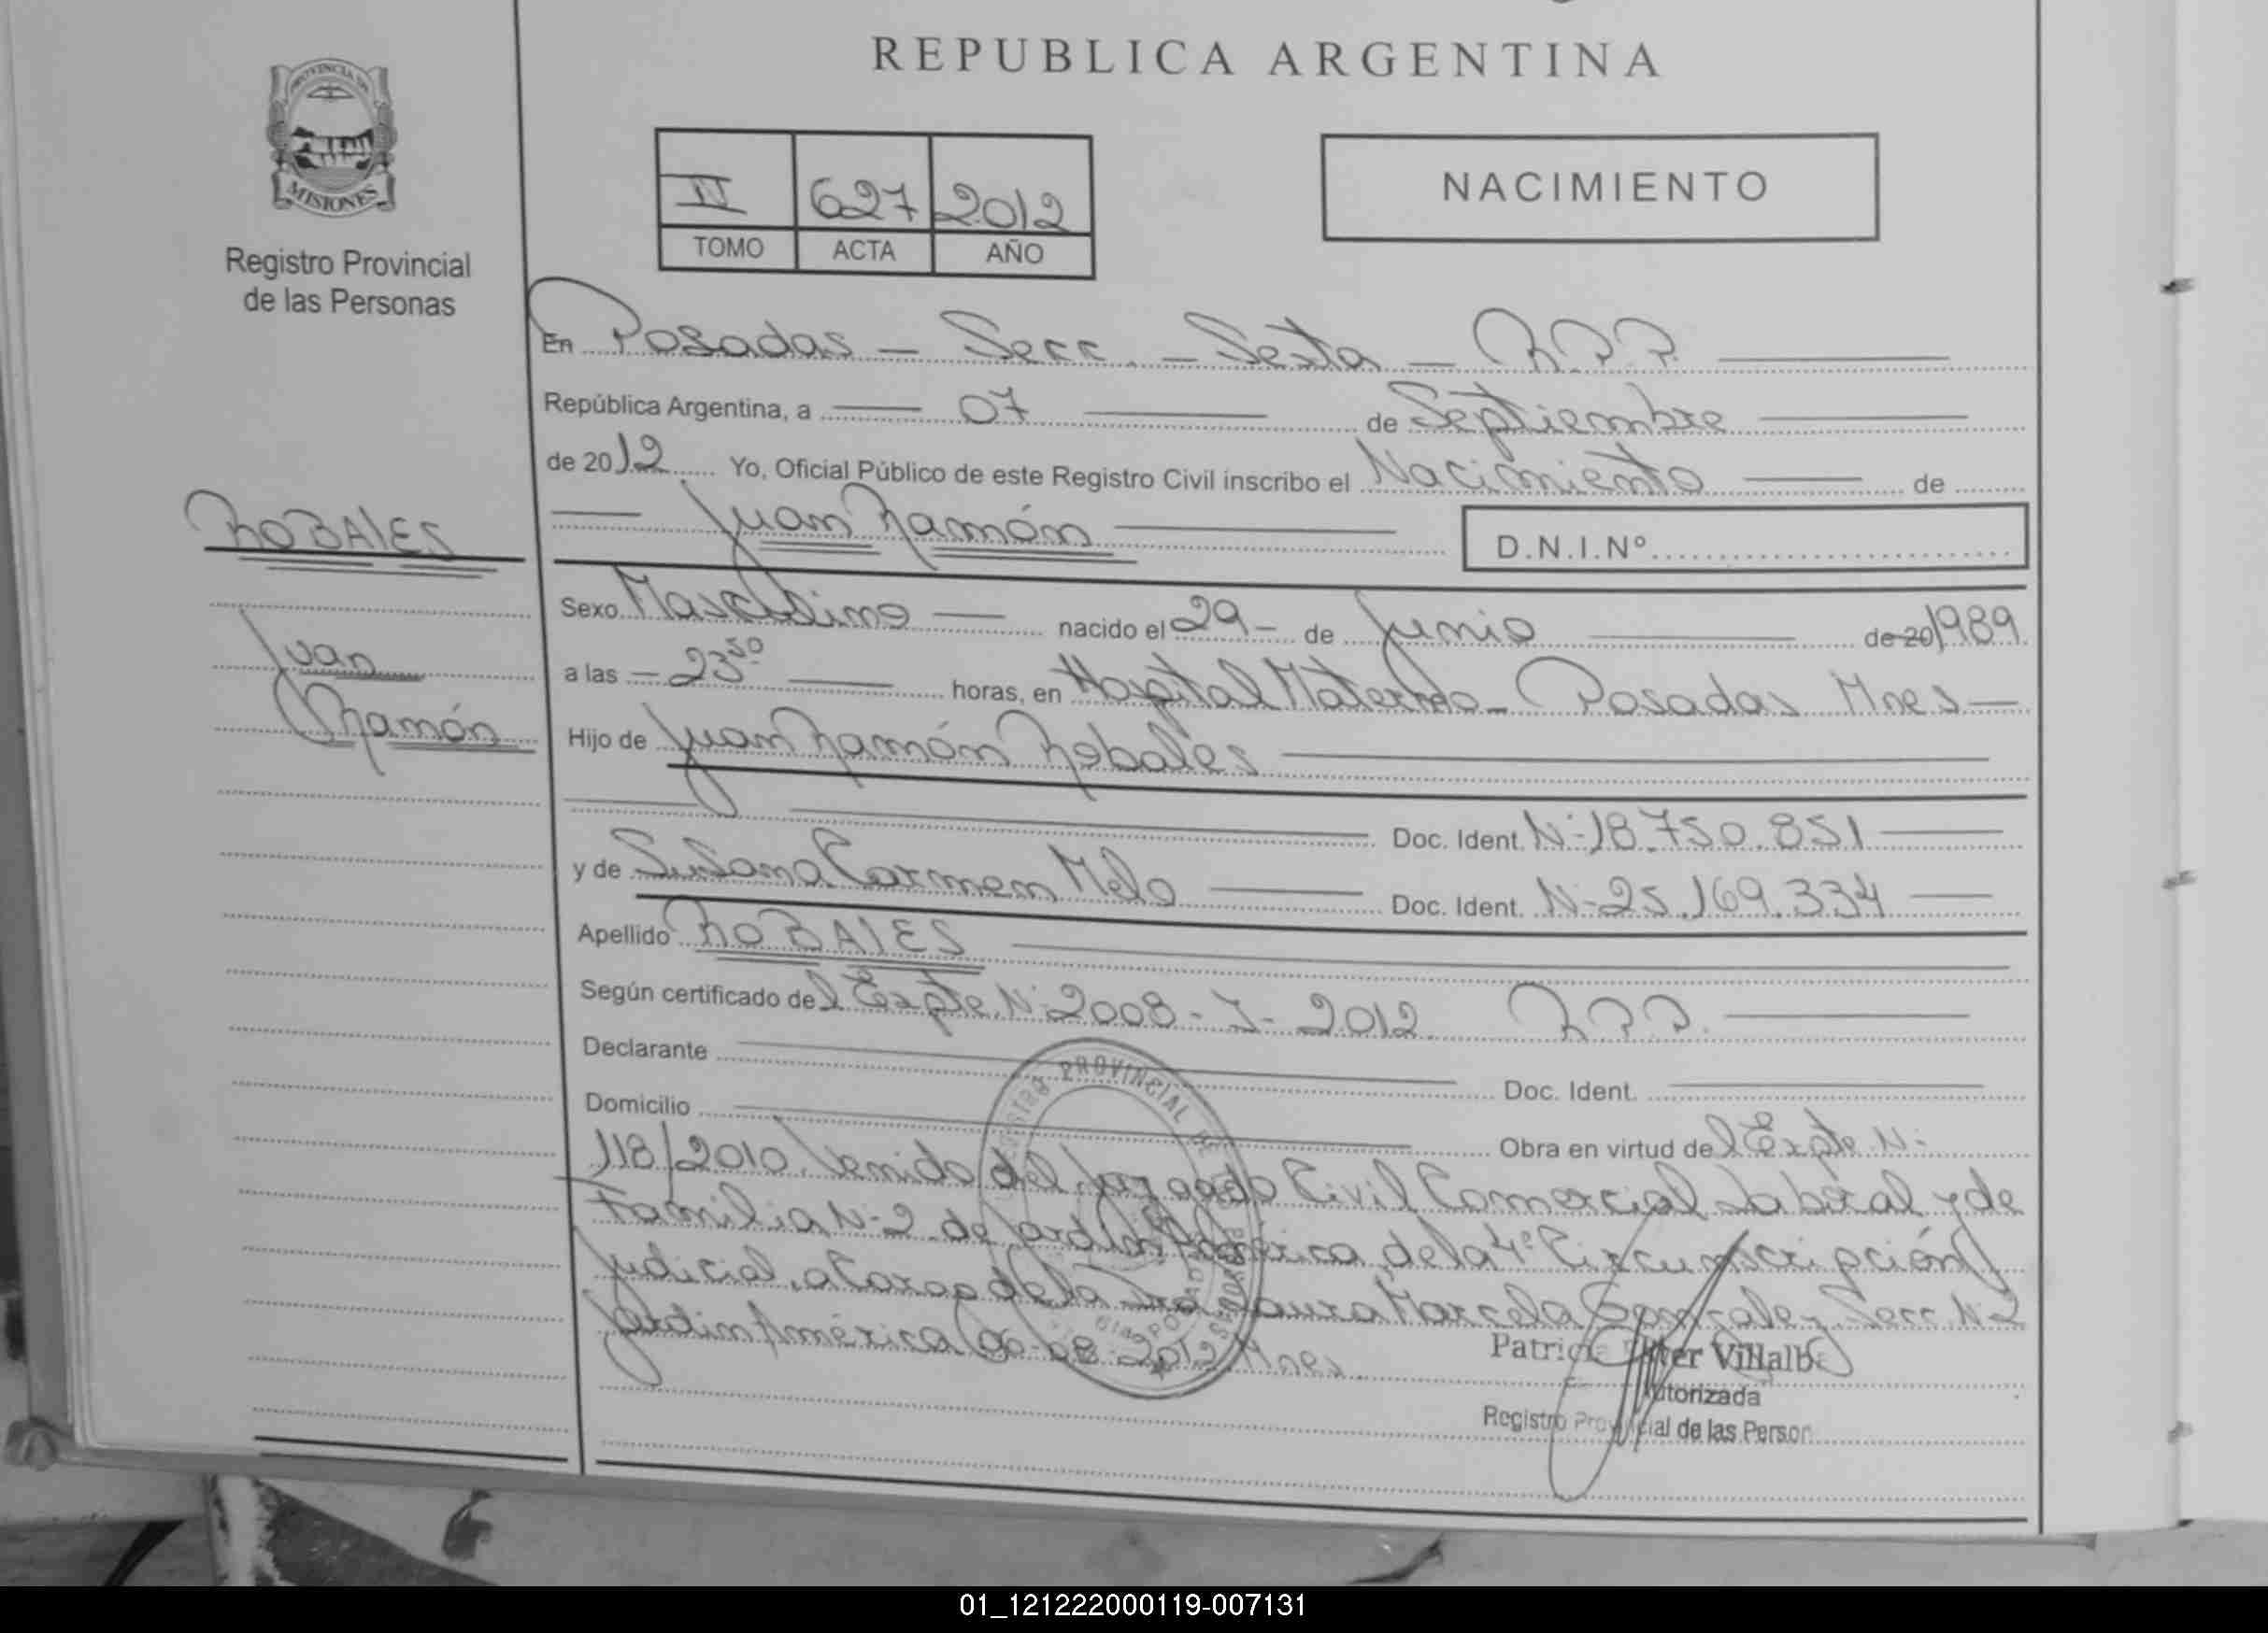 REPUBLICA ARGENTINA
PROVINCIA DE
MISIONES
Registro Provincial
de las Personas
II 627 2012
TOMO ACTA AÑO
NACIMIENTO
En Posadas - Secc. - Sexta - R.P.P.
República Argentina, a 07 de Septiembre
de 2012 Yo, Oficial Público de este Registro Civil inscribo el Nacimiento de
Juan Ramón
D.N.I.Nº
ROBALES
Juan
Ramón
Sexo Masculino nacido el 29 - de Junio de 20 1989
a las - 23 50 horas, en Hospital Materno - Posadas Mnes -
Hijo de Juan Ramón Robales
Doc. Ident. Nº 18.750.851
y de Susana Carmen Melo Doc. Ident. Nº 25.169.334
Apellido ROBALES
Según certificado del Expte. Nº 2008 - J - 2012. R.P.P.
Declarante Doc. Ident.
Domicilio Obra en virtud del Expte Nº
118/2010. Venido del Juzgado Civil Comercial Laboral y de
Familia Nº 2 de Jardín América, de la 4º Circunscripción
Judicial, a Cargo de la Dra. Laura Marcela Gonzalez Secc. Nº 2
Jardín América 08 - 2012 Mnes.
REGISTRO PROVINCIAL DE
Patricia Villalba
Autorizada
Registro Provincial de las Person
01_121222000119-007131